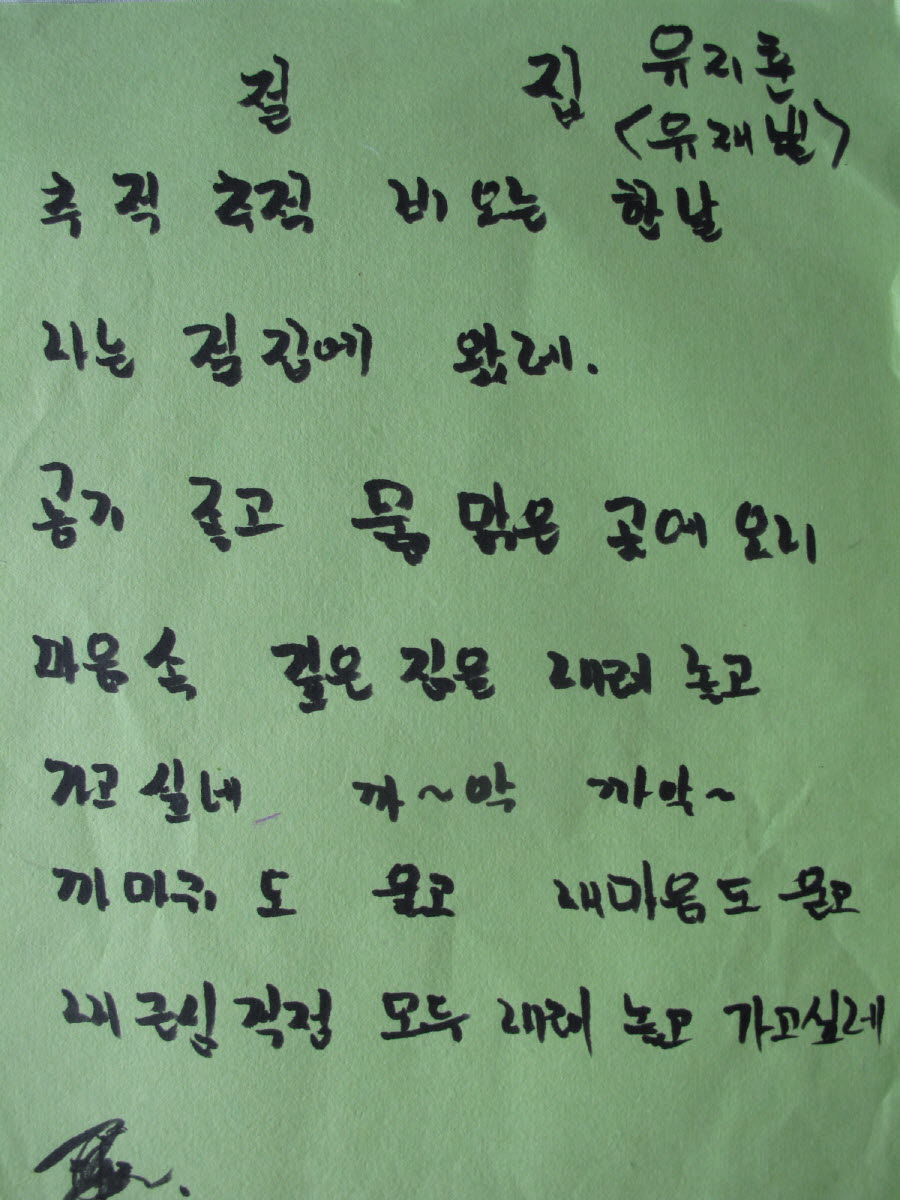 절 집 유리혼
<유재별>
추적 추적 비 오는 한날
나는 절집에 왔네.
공기 좋고 물 맑은 곳에 오니
마음속 깊은 짐을 내려 놓고
가고 싶네 까~악 까악~
까마귀 도 울고 내마음도 울고
내 근심 걱정 모두 내려 놓고 가고싶네